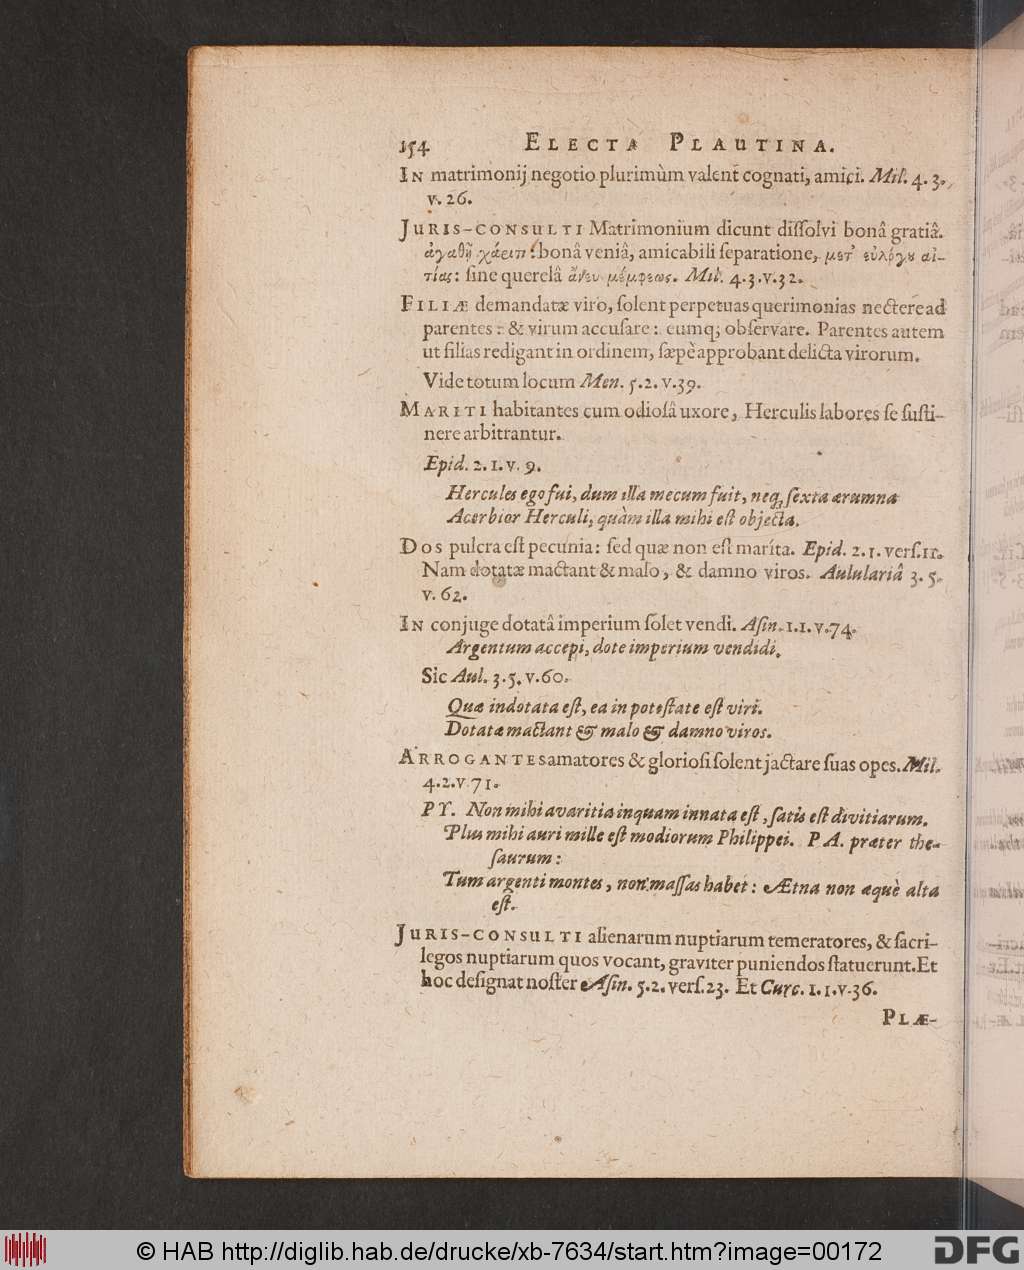 154 ELECTA PLAUTINA.
IN matrimonij negotio plurimùm valent cognati, amici. Mil. 4. 3.
v. 26.
JURIS-CONSULTI Matrimonium dicunt dissolvi bonâ gratiâ.
ἀγαθῇ χάριτι: bonâ veniâ, amicabili separatione, μετ' εὐλόγου αἰ-
τίας: sine querelâ ἄνευ μέμφεως. Mil. 4. 3. v. 32.
FILIÆ demandatæ viro, solent perpetuas querimonias nectere ad
parentes: & virum accusare: eumq; observare. Parentes autem
ut filias redigant in ordinem, sæpè approbant delicta virorum.
Vide totum locum Men. 5. 2. v. 39.
MARITI habitantes cum odiosâ uxore, Herculis labores se susti-
nere arbitrantur.
Epid. 2. 1. v. 9.
Hercules ego fui, dum illa mecum fuit, neq; sexta ærumna
Acerbior Herculi, quàm illa mihi est objecta.
DOS pulcra est pecunia: sed quæ non est maríta. Epid. 2. 1. vers. 11.
Nam dotatæ mactant & malo, & damno viros. Aululariâ 3. 5.
v. 62.
IN conjuge dotatâ imperium solet vendi. Asin. 1. 1. v. 74.
Argentum accepi, dote imperium vendidi.
Sic Aul. 3. 5. v. 60.
Quæ indotata est, ea in potestate est viri.
Dotatæ mactant & malo & damno viros.
ARROGANTES amatores & gloriosi solent jactare suas opes. Mil.
4. 2. v. 71.
PY. Non mihi avaritia inquam innata est, satis est divitiarum.
Plus mihi auri mille est modiorum Philippei. PA. præter the-
saurum:
Tum argenti montes, non massas habet: Ætna non æquè alta
est.
JURIS-CONSULTI alienarum nuptiarum temeratores, & sacri-
legos nuptiarum quos vocant, graviter puniendos statuerunt. Et
hoc designat noster Asin. 5. 2. vers. 23. Et Curc. 1. 1. v. 36.
PLÆ-
© HAB http://diglib.hab.de/drucke/xb-7634/start.htm?image=00172
DFG